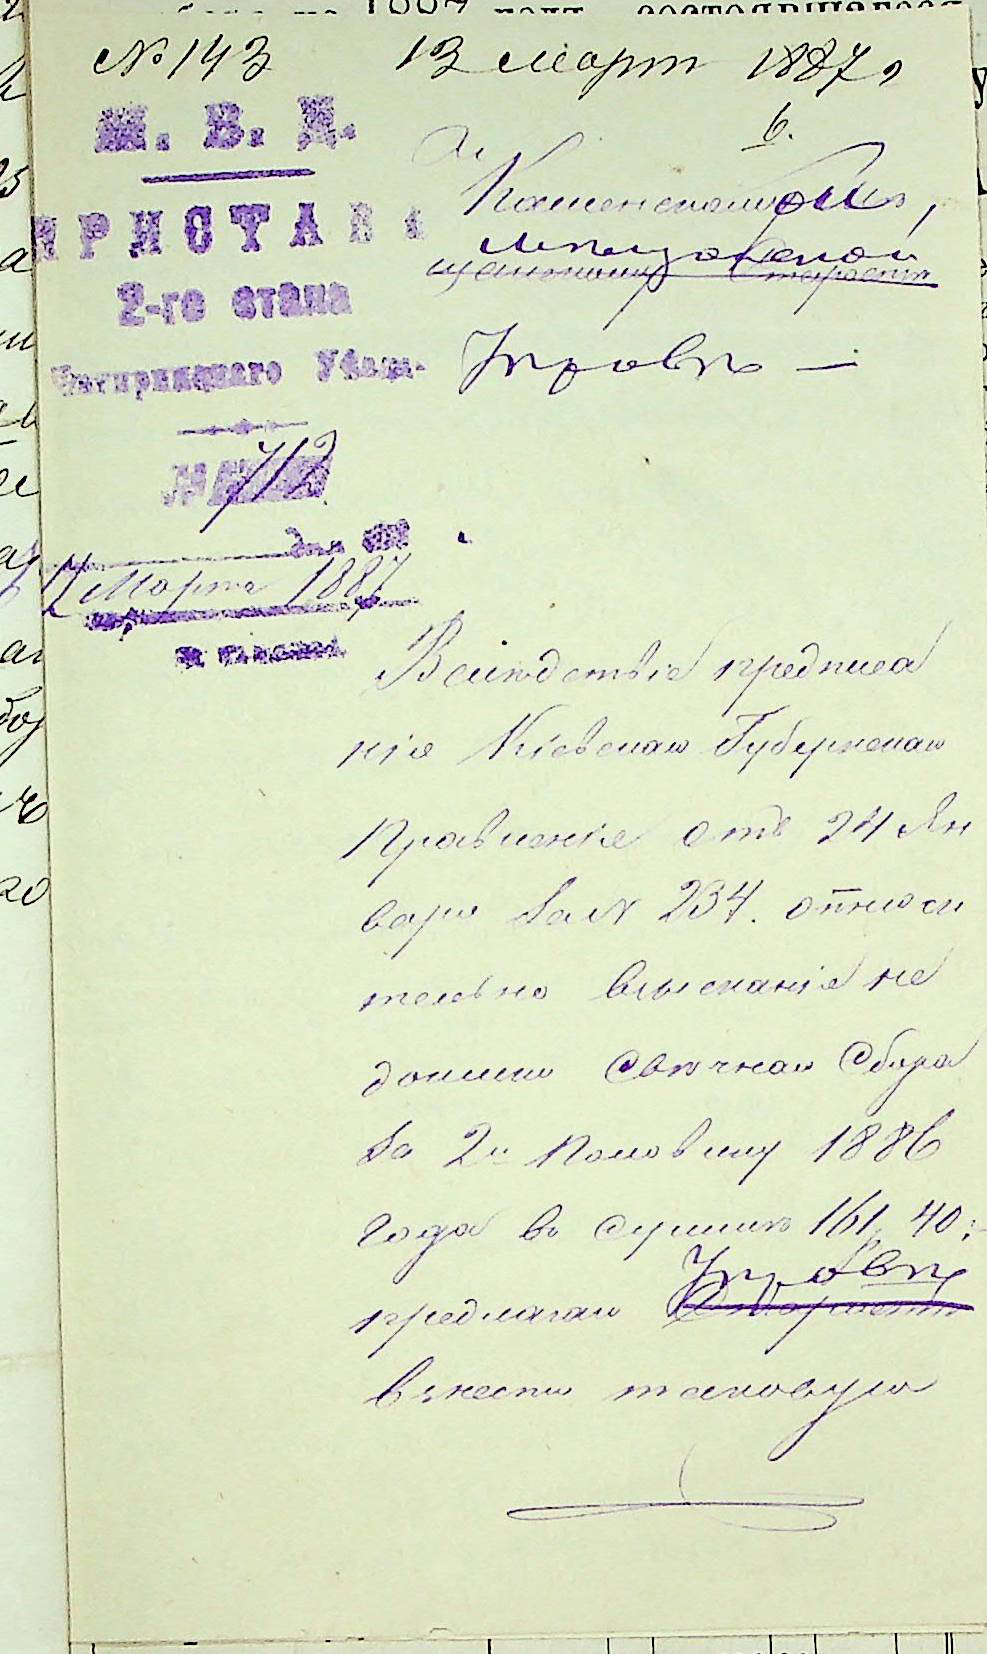 № 143 13 Март 1887 г
6.
М. В. Д.
ПРИСТАВЪ
2-го стана
Чигиринскаго Уѣзда
№ 712
дня
12 Марта 1887
Каменской
мѣщанской
Старостѣ
Управѣ —
Вслѣдствіе предписа
нія Кіевскаго Губернскаго
Правленія отъ 24 Ян
варя за N 234. относи
тельно взысканія не
доимки Свѣчнаго Сбора
за 2ю половину 1886
года въ суммѣ 161 р. 40
Управѣ
предлагаю Старостѣ
взнести таковую